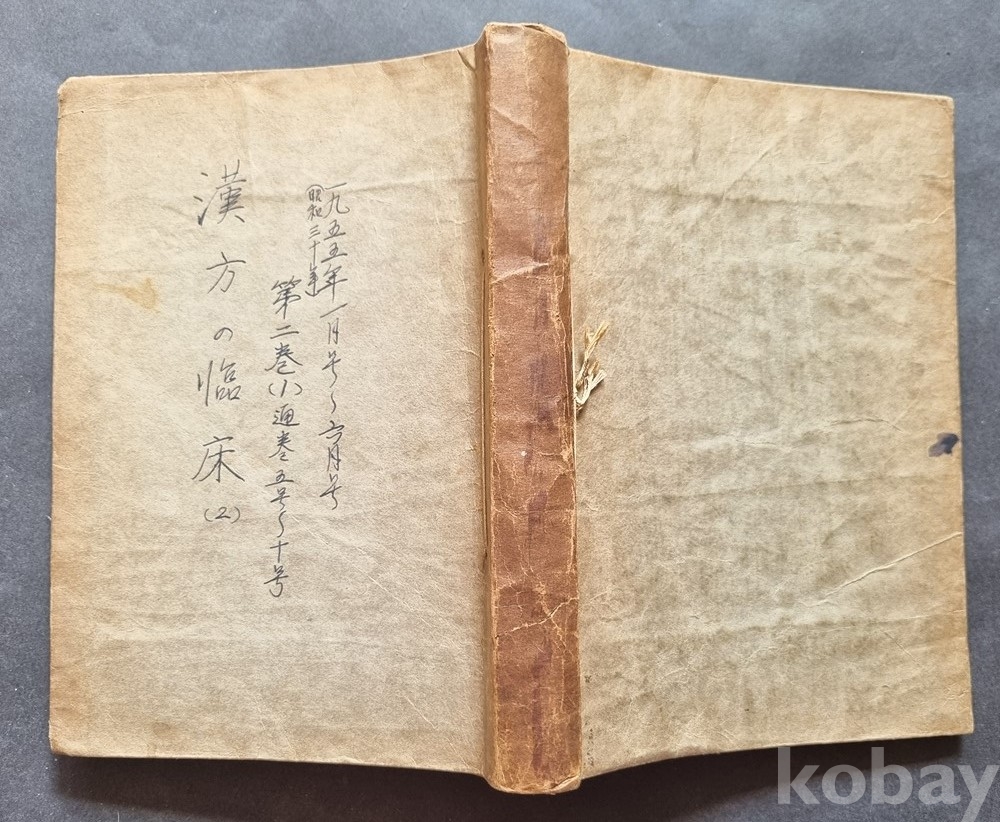 一九五五年一月号〜六月号
㊐昭和三十年
第二巻(1)通巻五号〜十号
漢方の臨床(2)
kobay